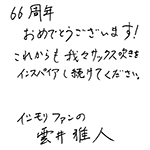 66周年
おめでとうございます!
これからも我々サックス吹きを
インスパイアし続けてください。
インモリファンの
雲井雅人